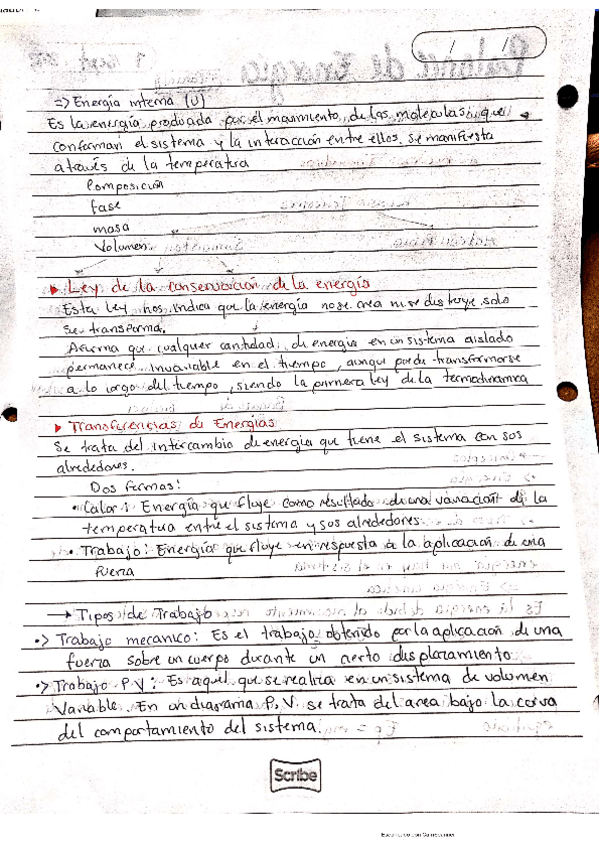 => Energía interna (U)
Es la energía producada por el movimiento de las moleculas que
conforman el sistema y la interacción entre ellos. Se manifiesta
através de la temperatura
Composición
fase
masa
Volumen
▸ Ley de la conservación de la energía
Esta Ley nos indica que la energía no se crea ni se distruye, solo
se transforma.
Afirma que cualquer cantidad de energía en un sistema aislado
permanece invariable en el tiempo, aunqu puede transformarse
a lo largo del tiempo, siendo la primera ley de la termodinámica
▸ Transferencias de Energías
Se trata del intercambio de energía que tiene el sistema con sos
alrededores.
Dos formas:
• Calor: Energía que fluye como resultado de una variación de la
temperatura entre el sistema y sus alrededores
• Trabajo: Energía que fluye en respuesta a la aplicación de una
fuerza
→ Tipos de Trabajo
•> Trabajo mecánico: Es el trabajo obtenido por la aplicación de una
fuerza sobre un cuerpo durante un cierto desplazamiento
•> Trabajo P.V: Es aquel que se realiza en un sistema de volumen
Variable. En un diagrama P.V. se trata del area bajo la curva
del comportamiento del sistema.
Scribe